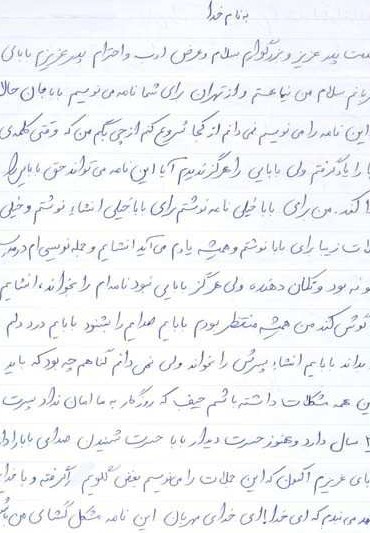 به نام خدا
پدر عزیز و بزرگوارم سلام و عرض ادب و احترام پدر عزیزم بابای
سلام من نیما هستم و از تهران برای شما نامه می نویسم بابا جان حالا
این نامه را می نویسم نمی دانم از کجا شروع کنم از چی بگم من که وقتی کلمه ی
را یاد گرفتم ولی بابایی را هرگز ندیدم آیا این نامه می تواند حق بابایی را
کند. من برای بابا خیلی نامه نوشتم برای بابا خیلی انشاء نوشتم و خیلی
زیبا برای بابا نوشتم و همیشه یادم می آید انشایم و جمله نویسی ام در مدرسه
نمونه بود و تکان دهنده ولی هرگز بابایی نبود نامه ام را بخواند، انشایم
گوش کند من همیشه منتظر بودم بابایم صدایم را بشنود بابایم درد دلم
بداند بابایم انشاء پسرش را بخواند ولی نمی دانم گناهم چه بود که باید
این همه مشکلات داشته باشم حیف که روزگار به ما امان نداد پسرت
سال دارد و هنوز حسرت دیدار بابا حسرت شنیدن صدای بابا را دارد
عزیزم اکنون که این جملات را می نویسم بغض گلویم را گرفته و با خدا
می بندم که ای خدا! ای خدای مهربان این نامه مشکل گشای من باشد